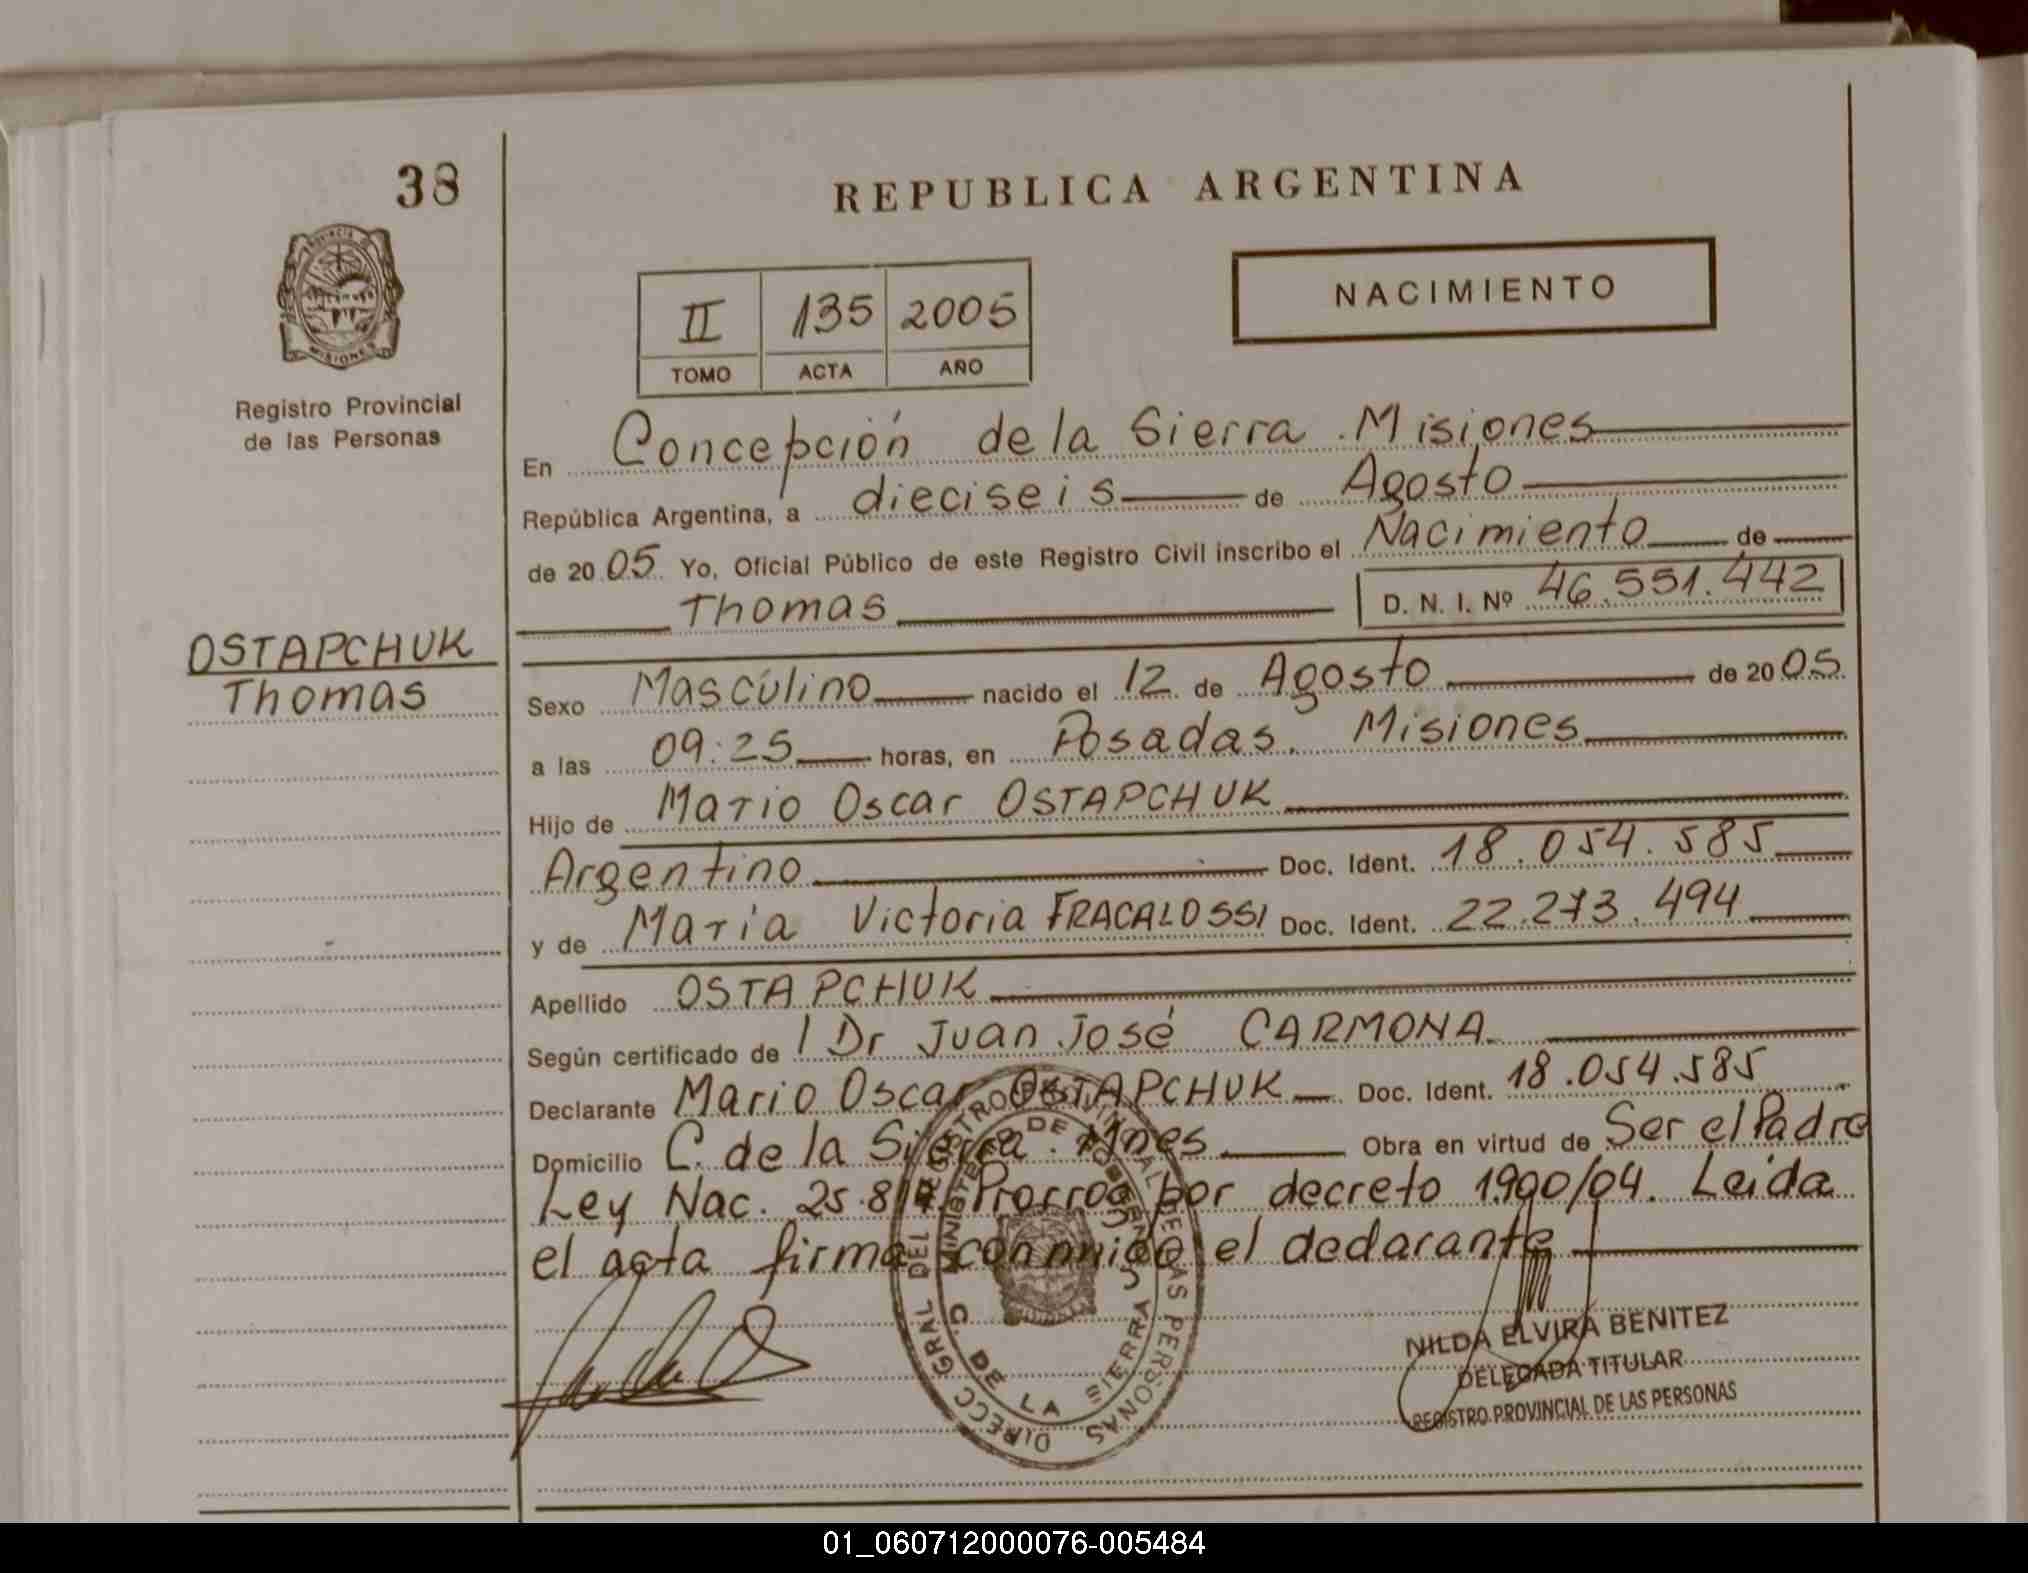 38
REPUBLICA ARGENTINA
PROVINCIA DE
MISIONES
II 135 2005
TOMO ACTA AÑO
NACIMIENTO
Registro Provincial
de las Personas
En Concepción de la Sierra. Misiones
República Argentina, a dieciseis de Agosto
de 2005 Yo, Oficial Público de este Registro Civil inscribo el Nacimiento de
Thomas D. N. I. Nº 46.551.442
OSTAPCHUK
Thomas
Sexo Masculino nacido el 12 de Agosto de 2005
a las 09:25 horas, en Posadas. Misiones
Hijo de Mario Oscar OSTAPCHUK
Argentino Doc. Ident. 18.054.585
y de María Victoria FRACALOSSI Doc. Ident. 22.273.494
Apellido OSTAPCHUK
Según certificado de l Dr Juan José CARMONA
Declarante Mario Oscar OSTAPCHUK Doc. Ident. 18.054.585
Domicilio C. de la Sierra. Mnes Obra en virtud de Ser el Padre
Ley Nac. 25.819 Prorrog por decreto 1900/04. Leida
el acta firma conmigo el declarante
DIRECC GRAL DEL REGISTRO PROVINCIAL DE LAS PERSONAS
MINISTERIO DE GOBIERNO
C. DE LA SIERRA
NILDA ELVIRA BENITEZ
DELEGADA TITULAR
REGISTRO PROVINCIAL DE LAS PERSONAS
01_060712000076-005484